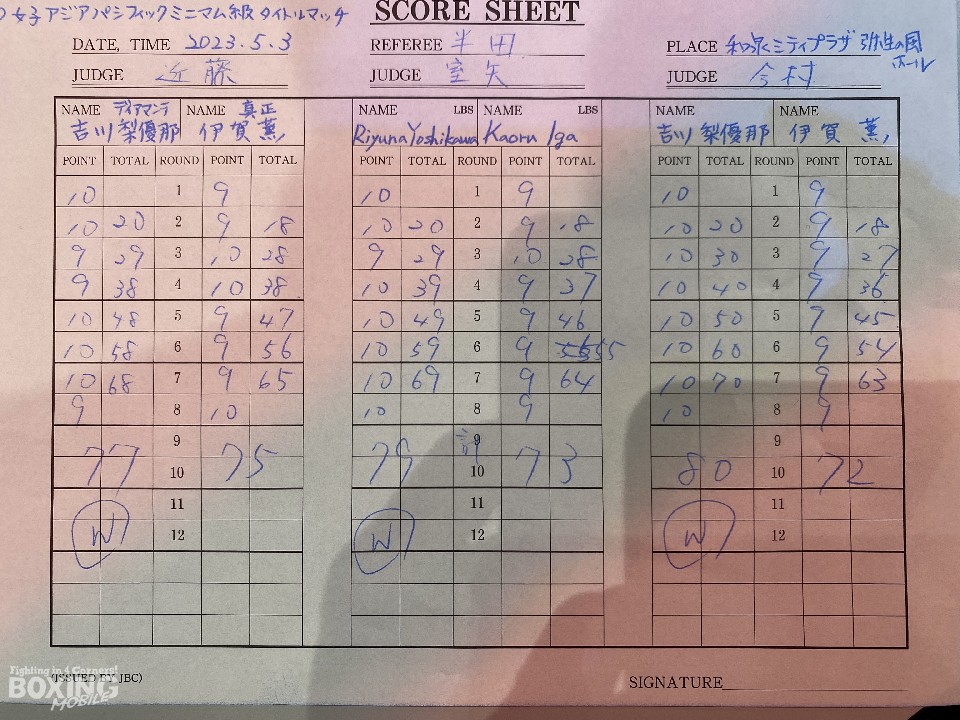 女子アジアパシフィックミニマム級タイトルマッチ
SCORE SHEET
DATE, TIME 2023.5.3 REFEREE 半田 PLACE 和泉シティプラザ 弥生の風ホール
JUDGE 近藤 JUDGE 室矢 JUDGE 今村
NAME ディアマンテ NAME 真正 NAME LBS NAME LBS NAME NAME
吉川梨優那 伊賀薫 Riyuna Yoshikawa Kaoru Iga 吉川梨優那 伊賀 薫
POINT TOTAL ROUND POINT TOTAL POINT TOTAL ROUND POINT TOTAL POINT TOTAL ROUND POINT TOTAL
10 1 9 10 1 9 10 1 9
10 20 2 9 18 10 20 2 9 18 10 20 2 9 18
9 29 3 10 28 9 29 3 10 28 10 30 3 9 27
9 38 4 10 38 10 39 4 9 37 10 40 4 9 36
10 48 5 9 47 10 49 5 9 46 10 50 5 9 45
10 58 6 9 56 10 59 6 9 55 10 60 6 9 54
10 68 7 9 65 10 69 7 9 64 10 70 7 9 63
9 8 10 10 8 9 10 8 9
9 計 9 9
77 10 75 79 10 73 80 10 72
11 11 11
W 12 W 12 W 12
(ISSUED BY JBC) SIGNATURE
Fighting in 4 Corners!
BOXING
MOBILE